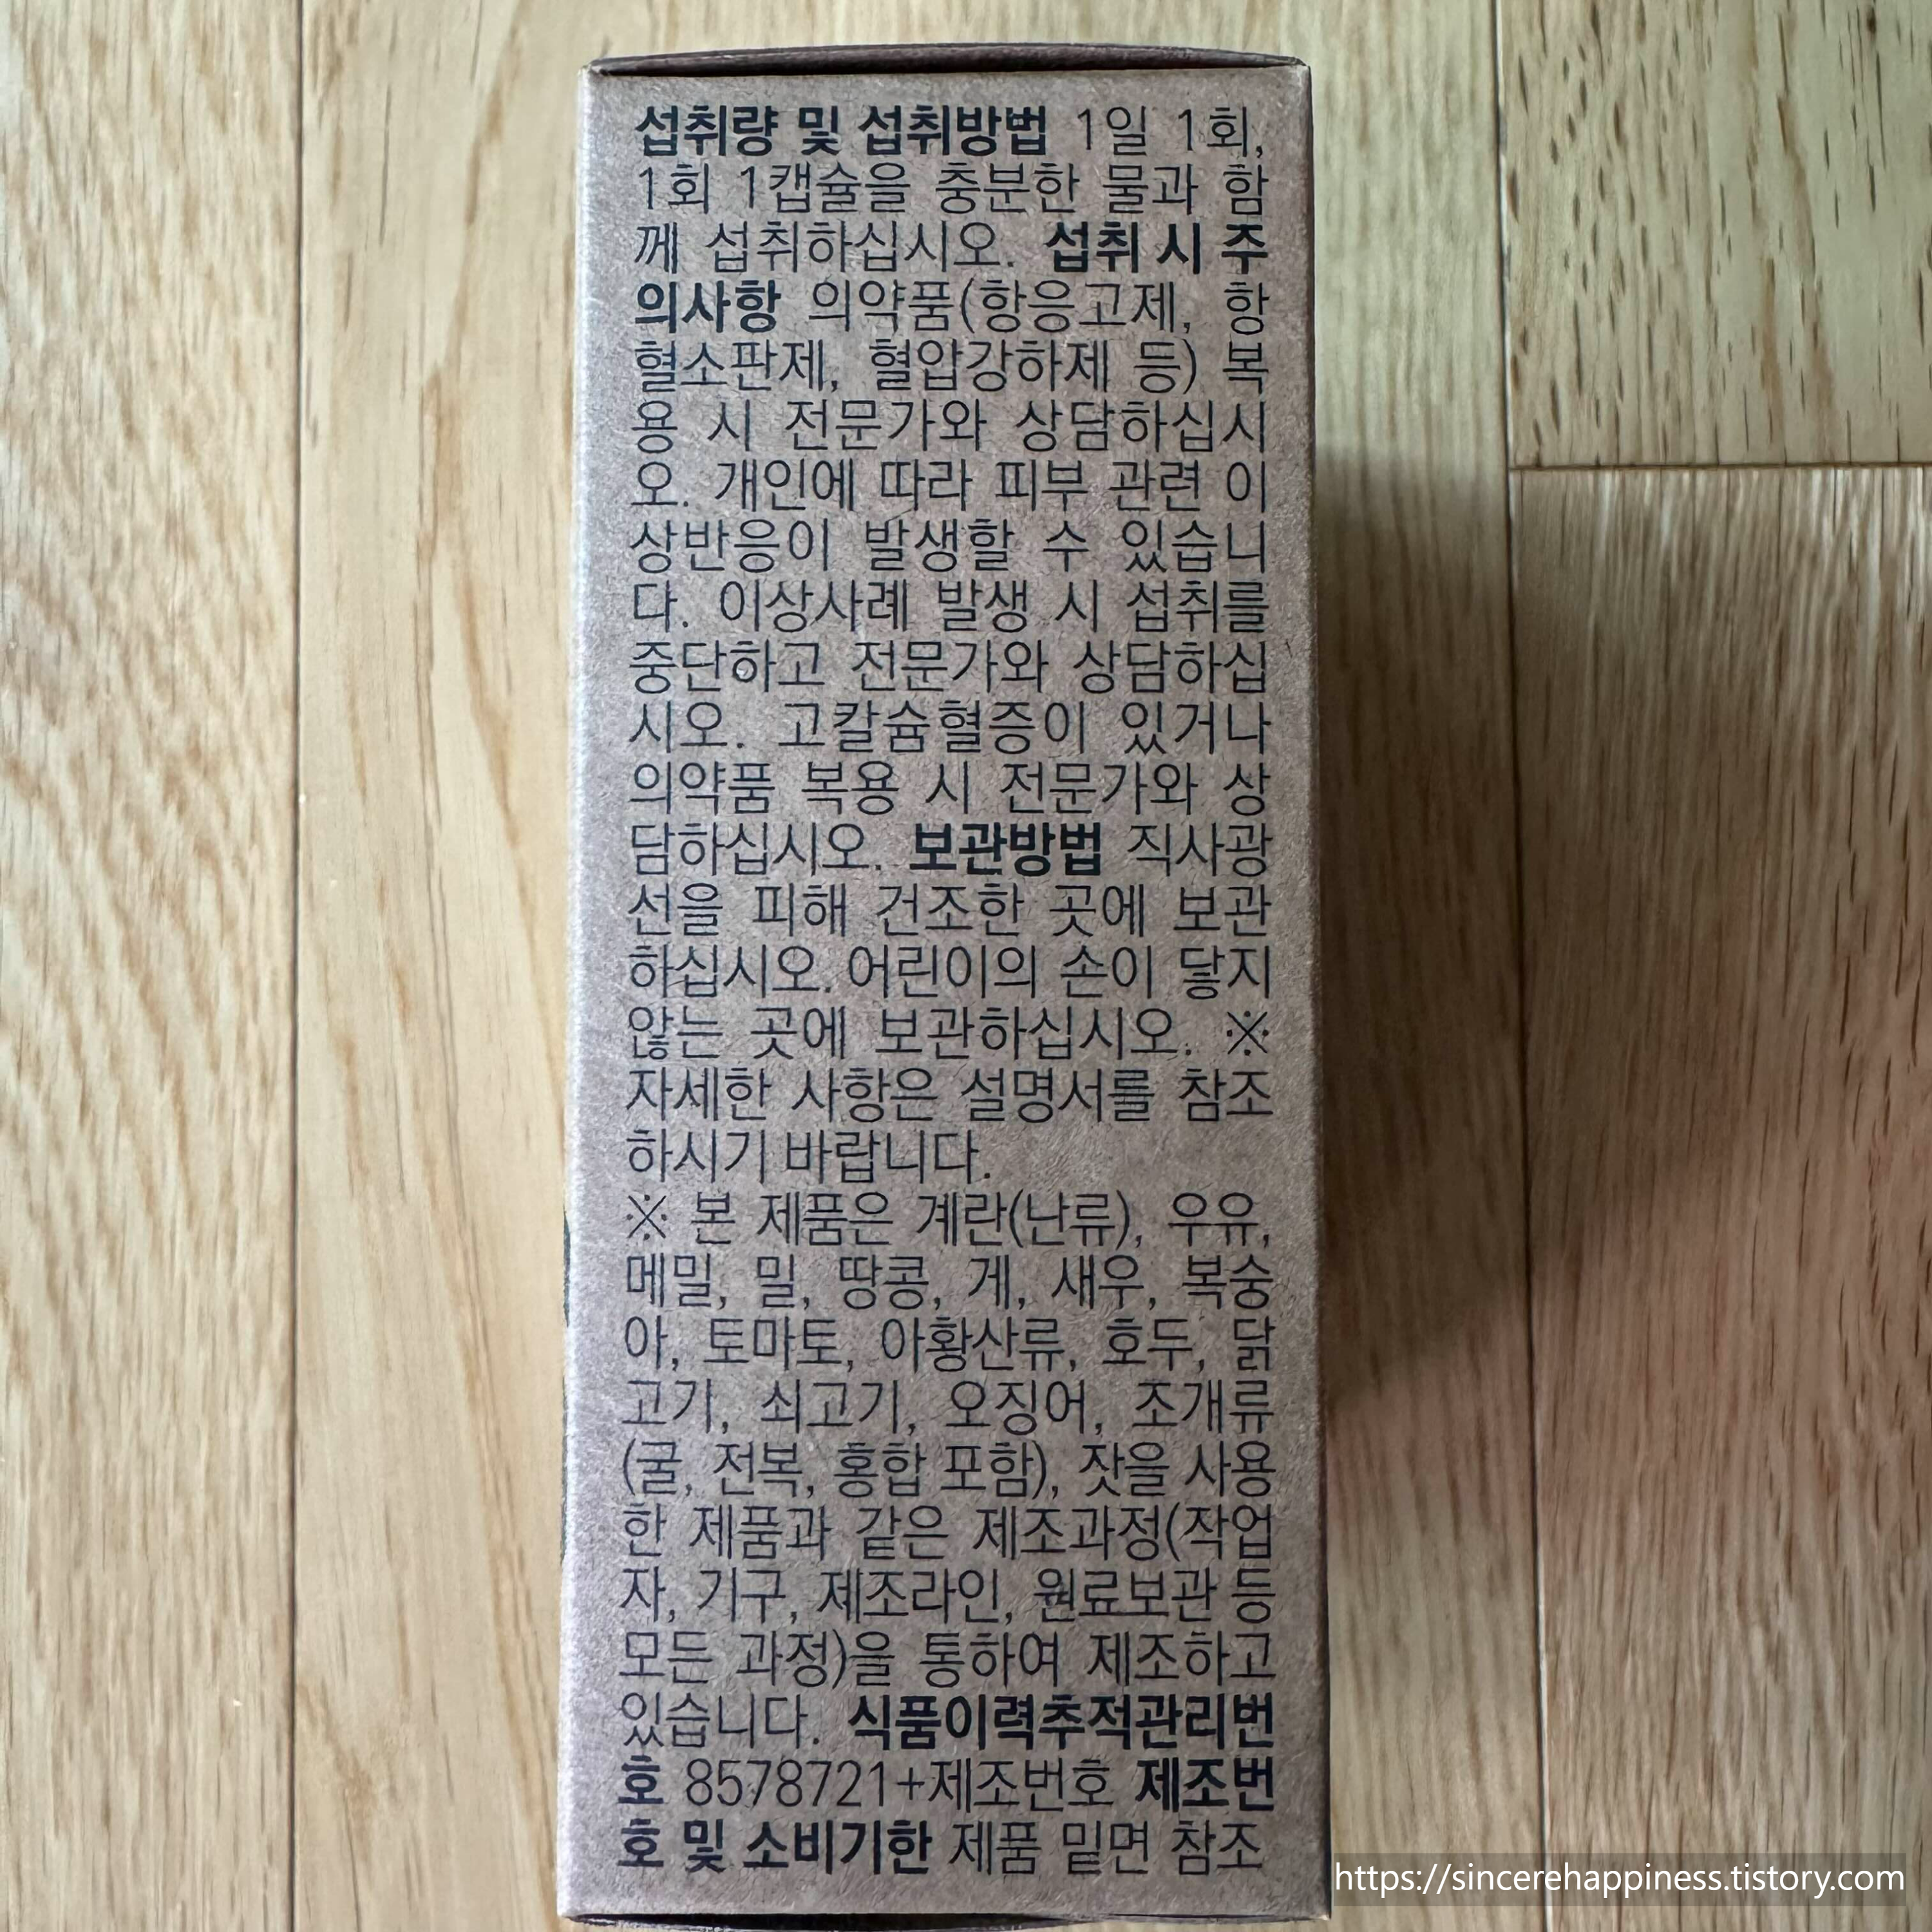 섭취량 및 섭취방법 1일 1회,
1회 1캡슐을 충분한 물과 함
께 섭취하십시오. 섭취 시 주
의사항 의약품(항응고제, 항
혈소판제, 혈압강하제 등) 복
용 시 전문가와 상담하십시
오. 개인에 따라 피부 관련 이
상반응이 발생할 수 있습니
다. 이상사례 발생 시 섭취를
중단하고 전문가와 상담하십
시오. 고칼슘혈증이 있거나
의약품 복용 시 전문가와 상
담하십시오. 보관방법 직사광
선을 피해 건조한 곳에 보관
하십시오. 어린이의 손이 닿지
않는 곳에 보관하십시오. ※
자세한 사항은 설명서를 참조
하시기 바랍니다.
※ 본 제품은 계란(난류), 우유,
메밀, 밀, 땅콩, 게, 새우, 복숭
아, 토마토, 아황산류, 호두, 닭
고기, 쇠고기, 오징어, 조개류
(굴, 전복, 홍합 포함), 잣을 사용
한 제품과 같은 제조과정(작업
자, 기구, 제조라인, 원료보관 등
모든 과정)을 통하여 제조하고
있습니다. 식품이력추적관리번
호 8578721+제조번호 제조번
호 및 소비기한 제품 밑면 참조
https://sincerehappiness.tistory.com